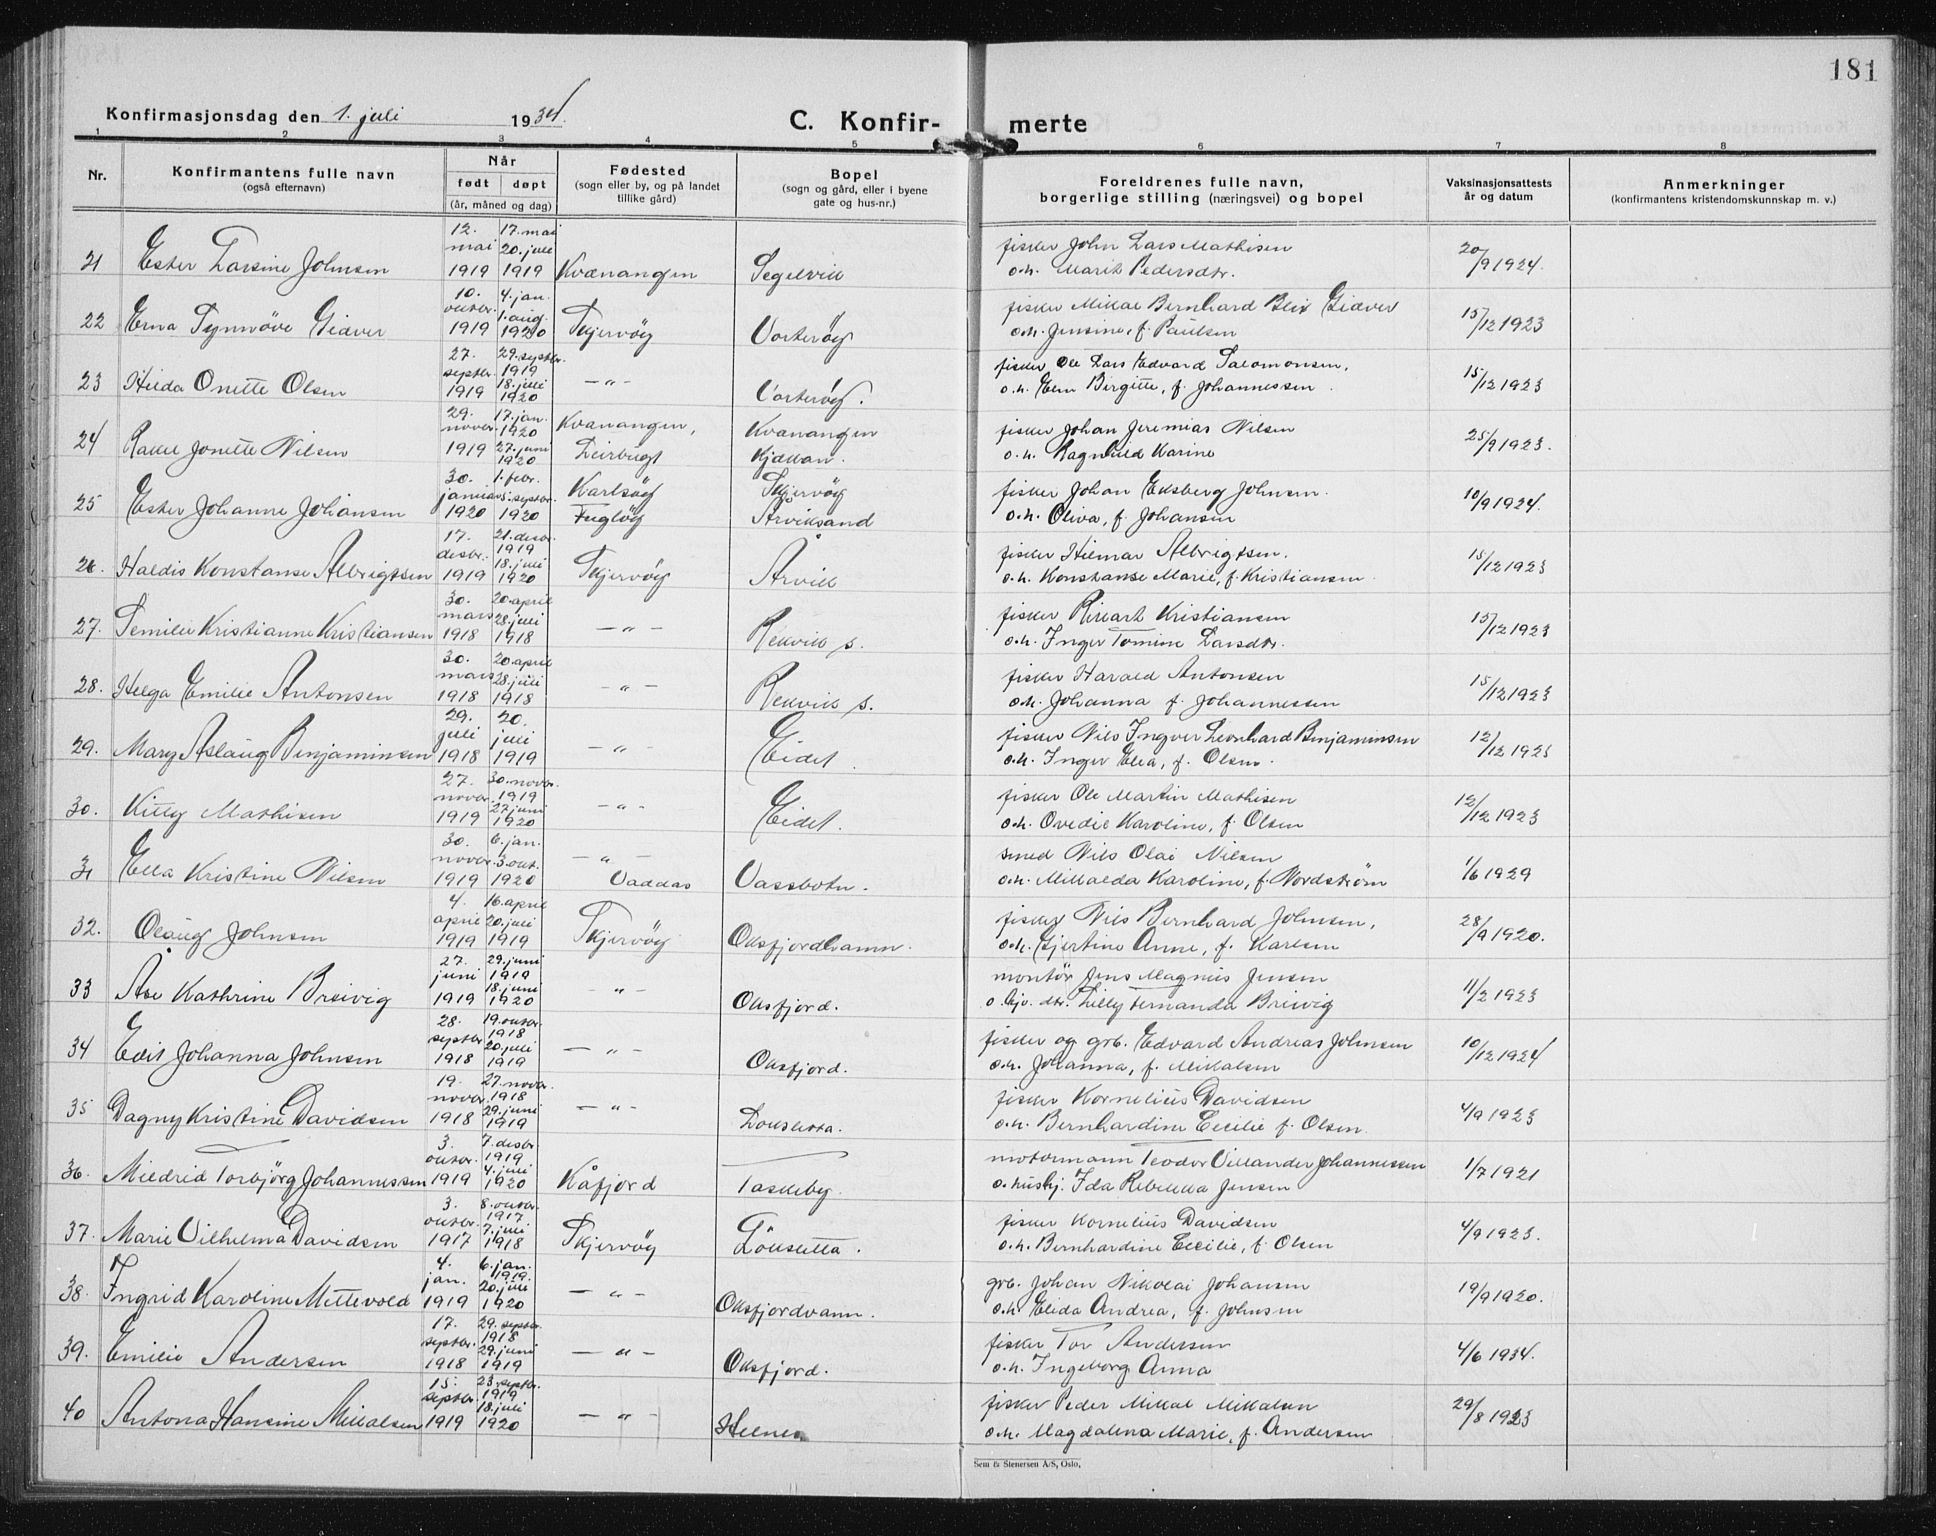 181
Konfirmasjonsdag den 1. juli 1934.
C. Konfirmerte
1 2 3 4 5 6 7 8
Nr.
Konfirmantens fulle navn
(også efternavn)
Når
født døpt
(år, måned og dag)
Fødested
(sogn eller by, og på landet
tillike gård)
Bopel
(sogn og gård, eller i byene
gate og hus-nr.)
Foreldrenes fulle navn,
borgerlige stilling (næringsvei) og bopel
Vaksinasjonsattests
år og datum
Anmerkninger
(konfirmantens kristendomskunnskap m. v.)
21 Ester Larsine Johnsen 12. mai 1919 17. mai 20. juli 1919 Kvænangen Segelvik fisker John Lars Mathisen o.h. Marit Pedersdtr. 20/9 1924.
22 Erna Synnöve Giæver 10. oktbr. 1919 4. jan. 1. aug. 1920 Skjervöy Vorteröy fisker Mikal Bernhard Blix Giæver o.h. Jensine, f. Paulsen 15/12 1923
23 Hilda Onette Olsen 27. septbr. 1919 29. septbr. 1919 18. juli 1920 —"— Vorteröy. fisker Ole Lars Edvard Salomonsen, o.h. Elen Birgitte, f. Johannessen 15/12 1923
24 Rakel Jonette Nilsen 29. novbr. 1919 17. jan. 1920 27. juni 1920 Kvænangen, Leirbugt Kvænangen Kjækan. fisker Johan Jeremias Nilsen o.h. Ragnhild Karine 25/9 1923.
25 Ester Johanne Johansen 30. januar 1920 1. febr. 5. septbr. 1920 Karlsöy Fuglöy Skjervöy Årviksand fisker Johan Eksberg Johnsen. o.h. Oliva, f. Johansen 10/9 1924.
26. Haldis Konstanse Albrigtsen 17. desbr. 1919 21. desbr. 1919 18. juli 1920 Skjervöy Årvik fisker Hilmar Albrigtsen. o.h. Konstanse Marie, f. Kristiansen 15/12 1923
27. Semilie Kristianne Kristiansen 30. mars 1918 20. april 28. juli 1918 —"— Rekvik s. fisker Rikart Kristiansen o.h. Inger Tomine Larsdtr. 15/12 1923
28. Helga Emilie Antonsen 30. mars 1918 20 april 28. juli 1918 —"— Rekvik s. fisker Harald Antonsen o.h. Johanna f. Johannessen 15/12 1923
29. Mary Aslaug Benjaminsen 29. juli 1918 20. juli 1919 —"— Eidet. fisker Nils Ingver Leonhard Benjaminsen o.h. Inger Elea, f. Olsen. 12/12 1923
30. Kitty Mathisen 27. novbr. 1919 30. novbr. 1919 27. juni 1920 —"— Eidet. fisker Ole Martin Mathisen o.h. Ovedie Karoline, f. Olsen 12/12 1923
31 Ella Kristine Nilsen 30. novbr. 1919 6. jan. 3. okt. 1920 —"— Vaddas Vassbotn. smed Nils Olai Nilsen o.h. Mikkalda Karoline, f. Nordström 1/6 1929
32. Olaug Johnsen 4. april 1919 16. april 20. juli 1919 Skjervöy Oksfjordhamn. fisker Nils Bernhard Johnsen, o.h. Gjertine Anne, f. Karlsen 28/9 1920.
33 Åse Kathrine Breivig 27. juni 1919 29. juni 1919 18. juni 1920 —"— Oksfjord. montör Jens Magnus Jensen o. hjv. dtr. Lilly Fernanda Breivig 11/2 1923
34 Edit Johanna Johnsen 28. septbr. 1918 19. oktbr. 1918 20. juli 1919 —"— Oksfjord. fisker og grb. Edvard Andreas Johnsen o.h. Johanna, f. Mikalsen 10/12 1924
35 Dagny Kristine Davidsen 19. novbr. 1918 27. novbr. 1918 29. juni 1919 —"— fisker Kornelius Davidsen o.h. Bernhardine Cecilie f. Olsen. 4/9 1923
36. Mildrid Torbjörg Johannessen 3. oktbr. 1919 7. desbr. 1919 4. juli 1920 Kåfjord Taskeby. motormann Teodor Villander Johannessen o. hushj. Ida Rebekka Jensen 1/7 1921
37. Marie Vilhelma Davidsen 3. oktbr. 1917 8. oktbr. 1917 7. juli 1918 Skjervöy fisker Kornelius Davidsen o.h. Bernhardine Cecilie, f. Olsen 4/9 1923.
38. Ingrid Karoline Mettevold 4. jan. 1919 6. jan. 1919. 20. juli 1920 —"— Oksfjordvann. grb. Johan Nikolai Johansen o.h. Elida Andrea, f. Johnsen 19/9 1920.
39. Emilie Andersen 17. septbr. 1918 29. septbr. 1918 29. juni 1919 —"— Oksfjord. fisker Tor Andersen o.h. Ingeborg Anna 4/6 1934.
40 Antona Hansine Mikkalsen 15. septbr. 1919 23. septbr. 1919 18. juli 1920 —"— Helnes fisker Peder Mikal Mikalsen o.h. Magdalena Marie, f. Andersen 29/8 1923
Sem & Stenersen A/S, Oslo.